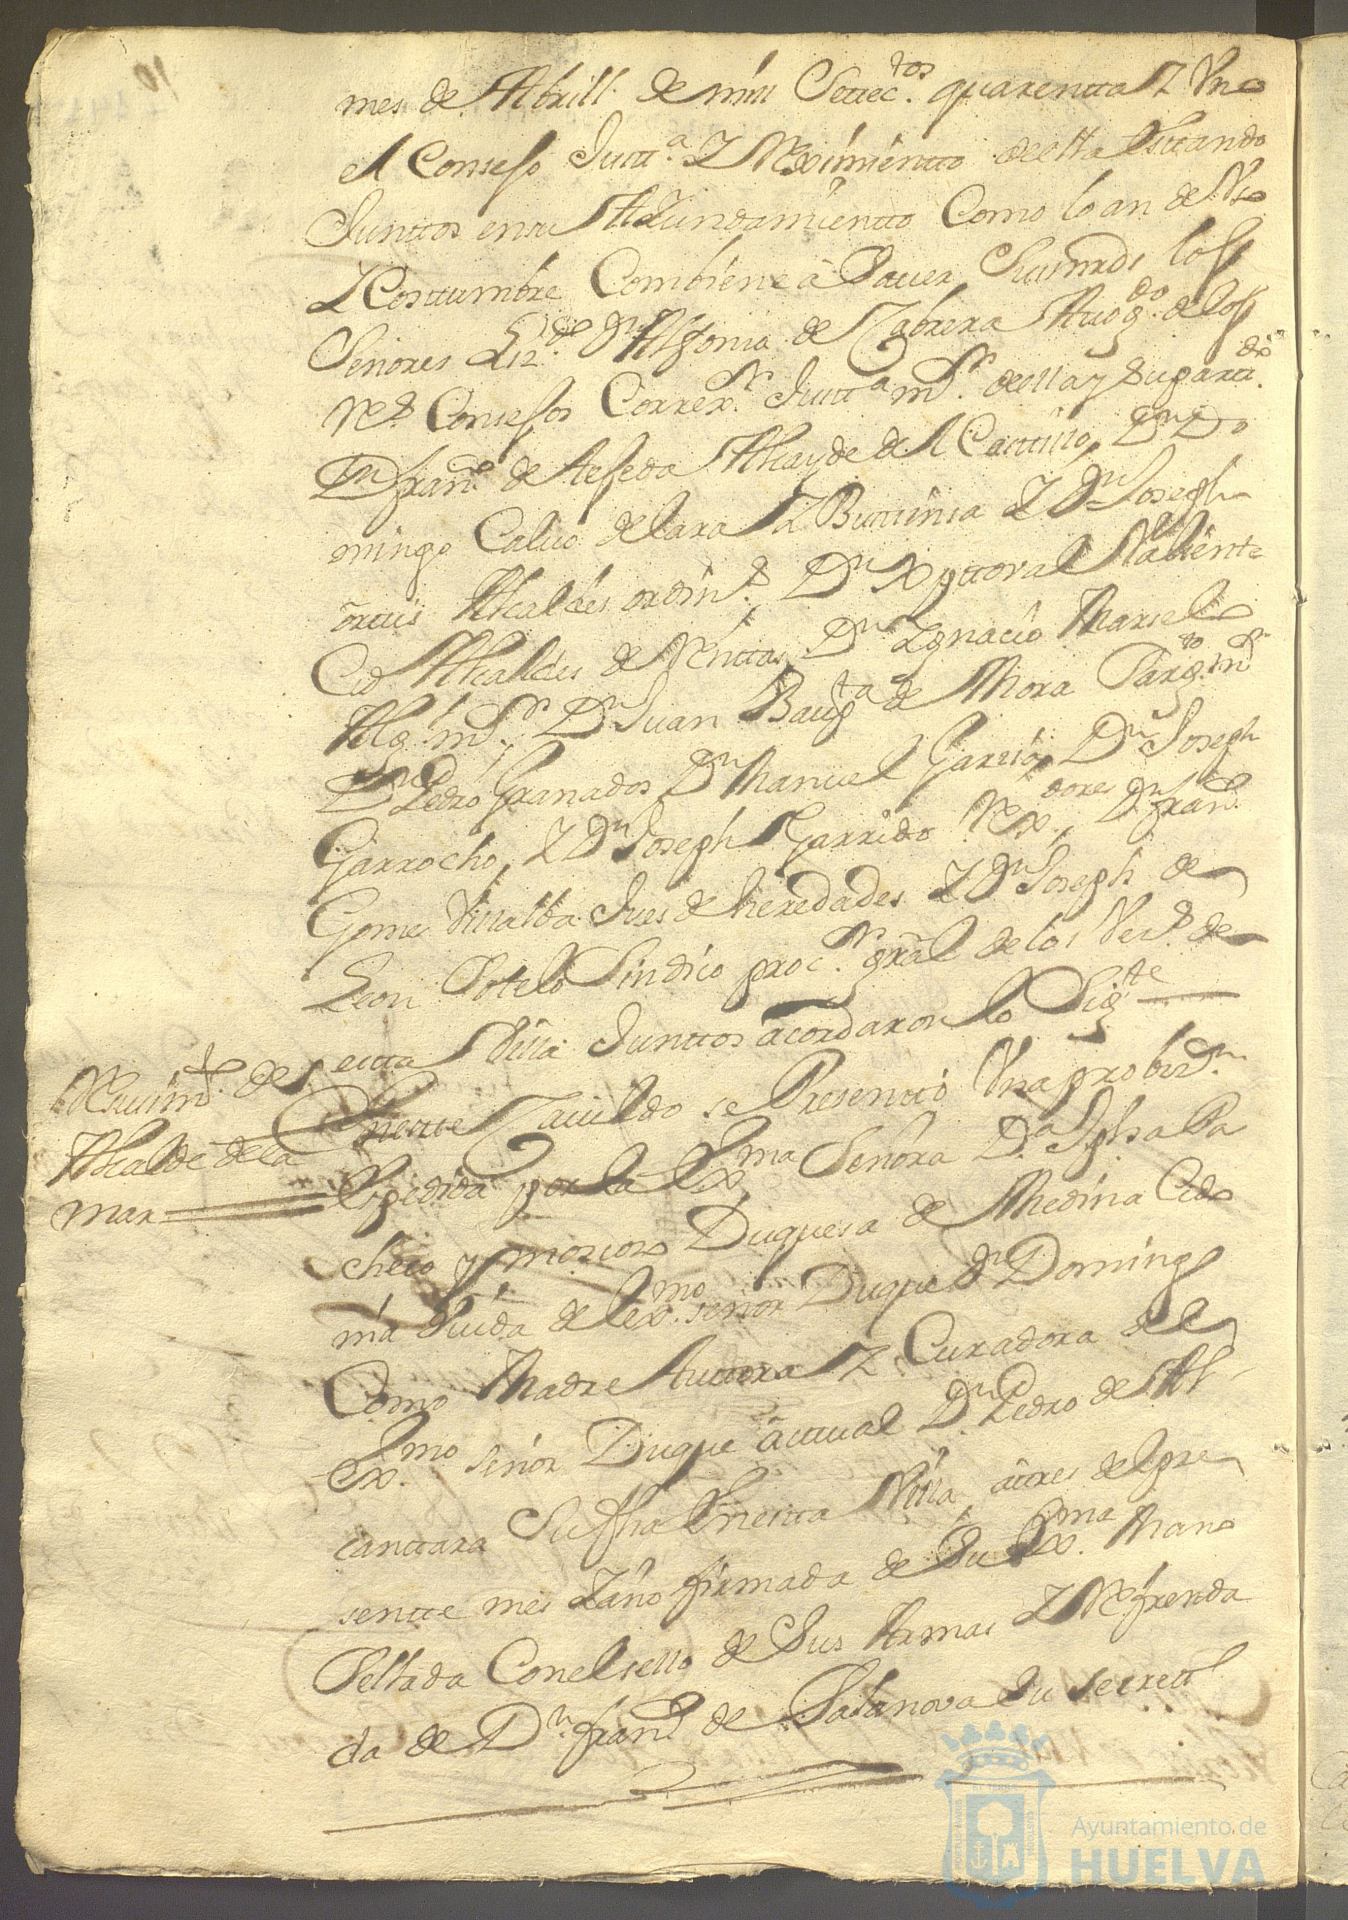 mes de Abrill de mill Settec.tos quarentta Z Uno
el Consejo Justt.a Z Reximientto de estta Estando
Junttos en su AiZunttamientto Como lo an de Uso
Z Costtumbre Combiene a Sauer, Susmrds los
Señores Liz.do Dn Alfonso de Cabrera Auog.do de los
Rs. Consejos Correx.r Justt.a m.r de estta y su partt.do
Dn fran.co de Asejeda Alcayde del Casttillo, Dn Do
mingo Calvo de lara Z Buttinsa Z Dn Joseph
orttis Alcaldes ordin.s, Dn Xpttoval Valiente
Cid Alcaldes de Renttas, Dn Ygnacio Marselo
Alg.l m.r, Dn Juan Baup.ta de Mora
Dn Pedro Granados Dn Manuel Garzia, Dn Joseph
Garrocho, Z Dn Joseph Garrido Rex.dores, Dn fran.co
Gomes Villalba Jues de heredades Z Dn Joseph de
Leon Sotelo Sindico proc.r gral de los Vez.s de
estta Villa Junttos acordaron lo Sig.te
Reciuim.to de
Alcalde de la
mar
En estte Cauildo se Presenttó Una probiss.n
Expedida por la Ex.ma Señora D.a Jpha Pa
checo y moscoso Duquesa de Medina Cido
nia Viuda del ex.mo señor Duque Dn Domingo
Como Madre tuttora Z Curadora del
Ex.mo Señor Duque acttual Dn Pedro de Al
canttara Su fha En estta Villa, a ttres del pre
sentte mes Z año firmada de Su Ex.ma Mano
Sellada Con el sello de Sus Armas Z Refrenda
da de Dn fran.co de Casanova Su secrett.o
Ayuntamiento de
HUELVA